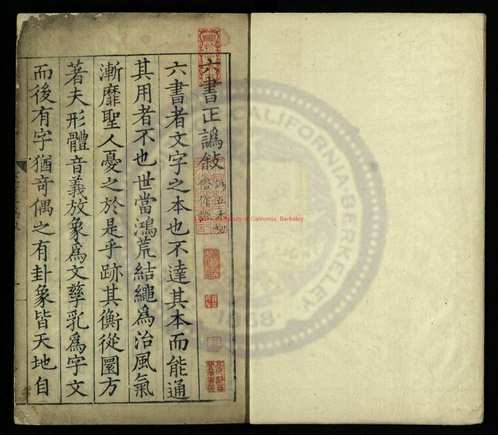 六書正譌敍
六書者文字之本也不達其本而能通
其用者不也世當鴻荒結繩爲治風氣
漸靡聖人憂之於是乎跡其衡從圜方
著夫形體音義放象爲文孳乳爲字文
而後有字猶奇偶之有卦象皆天地自
University of California, Berkeley
CALIFORNIA·BERKELEY
1868